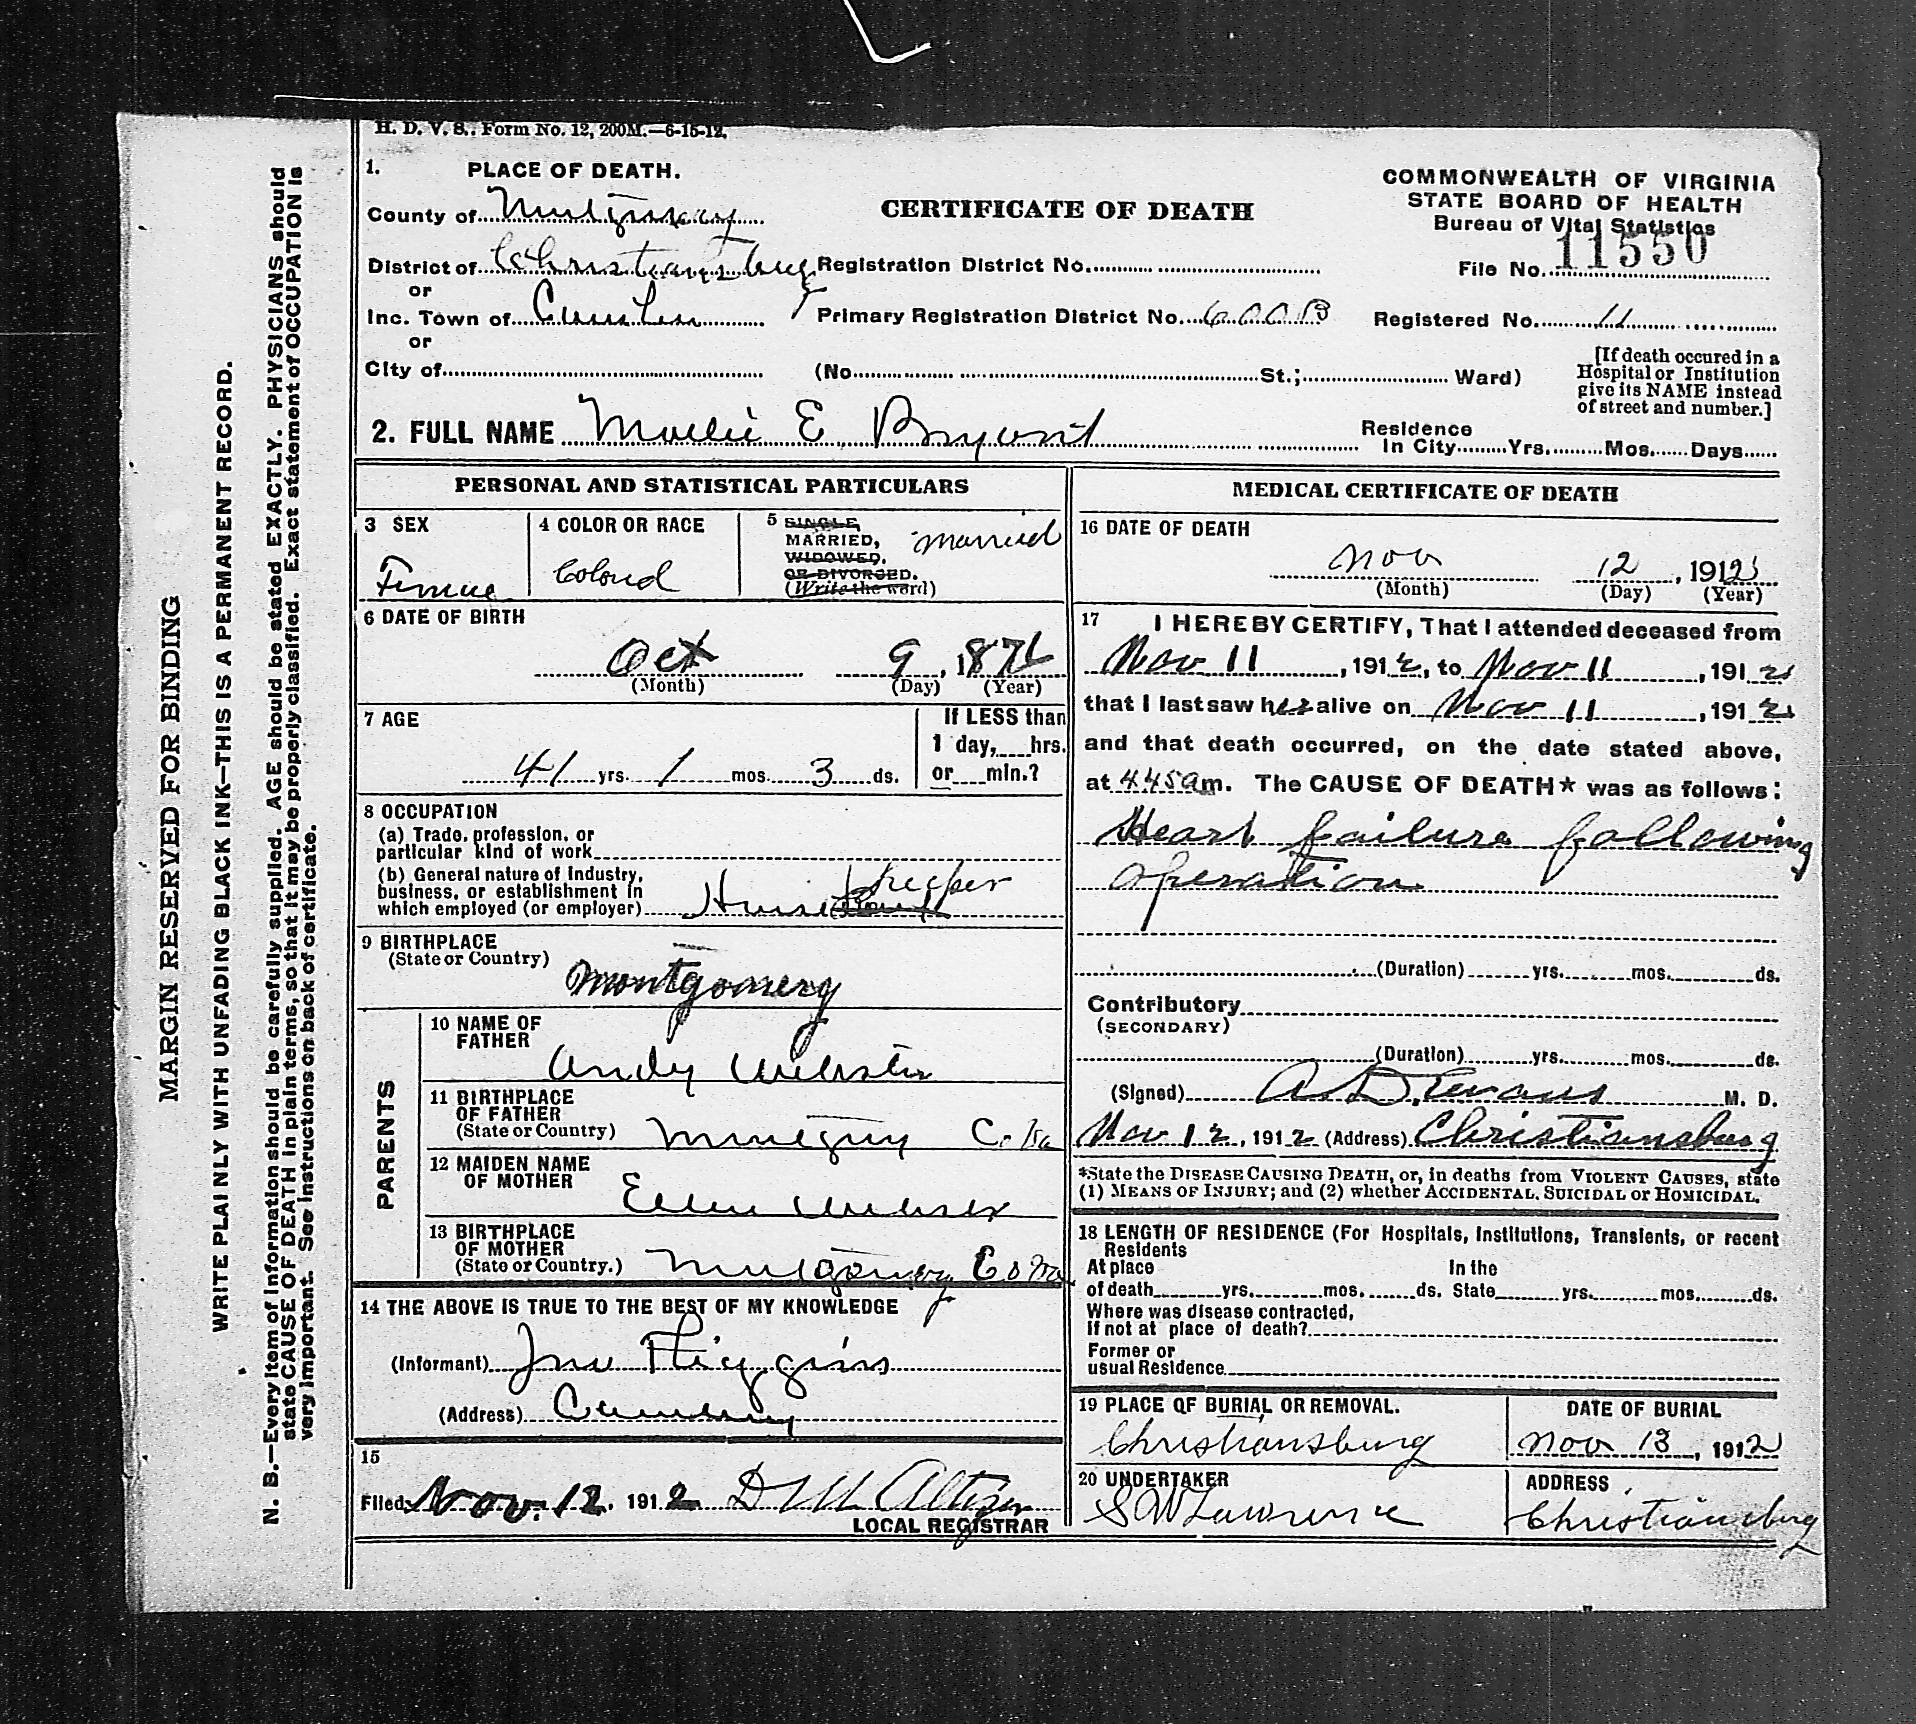 H. D. V. S., Form No. 12, 200M.—6-15-12.
1. PLACE OF DEATH.
COMMONWEALTH OF VIRGINIA
STATE BOARD OF HEALTH
Bureau of Vital Statistics
CERTIFICATE OF DEATH
County of Montgomery
District of Christiansburg
Registration District No.
File No. 11550
or
Inc. Town of
Primary Registration District No. 600B
Registered No. 11
or
City of
(No. St.; Ward)
[If death occured in a
Hospital or Institution
give its NAME instead
of street and number.]
2. FULL NAME Mollie E Bryant
Residence
In City Yrs. Mos. Days
PERSONAL AND STATISTICAL PARTICULARS
3 SEX
Female
4 COLOR OR RACE
Colored
5 SINGLE,
MARRIED,
WIDOWED,
OR DIVORCED.
(Write the word)
married
6 DATE OF BIRTH
Oct 9, 1871
(Month) (Day) (Year)
7 AGE
41 yrs. 1 mos. 3 ds.
If LESS than
1 day, hrs.
or min.?
8 OCCUPATION
(a) Trade, profession, or
particular kind of work
(b) General nature of Industry,
business, or establishment in
which employed (or employer) House keeper
9 BIRTHPLACE
(State or Country)
Montgomery
PARENTS
10 NAME OF
FATHER
Andy Webster
11 BIRTHPLACE
OF FATHER
(State or Country) Montgomery Co. Va
12 MAIDEN NAME
OF MOTHER
Ellen Webster
13 BIRTHPLACE
OF MOTHER
(State or Country.) Montgomery Co Va
14 THE ABOVE IS TRUE TO THE BEST OF MY KNOWLEDGE
(Informant) Jno Higgins
(Address)
15
Filed Nov. 12, 1912 D W Altizer
LOCAL REGISTRAR
MEDICAL CERTIFICATE OF DEATH
16 DATE OF DEATH
Nov 12, 1912
(Month) (Day) (Year)
17 I HEREBY CERTIFY, That I attended deceased from
Nov 11, 1912, to Nov 11, 1912
that I last saw her alive on Nov 11, 1912
and that death occurred, on the date stated above,
at 4.45 am. The CAUSE OF DEATH* was as follows:
Heart failure following
operation
(Duration) yrs. mos. ds.
Contributory
(SECONDARY)
(Duration) yrs. mos. ds.
(Signed) A. D. Evans M. D.
Nov 12, 1912 (Address) Christiansburg
*State the DISEASE CAUSING DEATH, or, in deaths from VIOLENT CAUSES, state
(1) MEANS OF INJURY; and (2) whether ACCIDENTAL, SUICIDAL or HOMICIDAL.
18 LENGTH OF RESIDENCE (For Hospitals, Institutions, Transients, or recent
Residents
At place In the
of death yrs. mos. ds. State yrs. mos. ds.
Where was disease contracted,
if not at place of death?
Former or
usual Residence
19 PLACE OF BURIAL OR REMOVAL.
Christiansburg
DATE OF BURIAL
Nov 13, 1912
20 UNDERTAKER
S W Lawrence
ADDRESS
Christiansburg
MARGIN RESERVED FOR BINDING
WRITE PLAINLY WITH UNFADING BLACK INK—THIS IS A PERMANENT RECORD.
N. B.—Every item of information should be carefully supplied. AGE should be stated EXACTLY. PHYSICIANS should
state CAUSE OF DEATH in plain terms, so that it may be properly classified. Exact statement of OCCUPATION is
very important. See instructions on back of certificate.